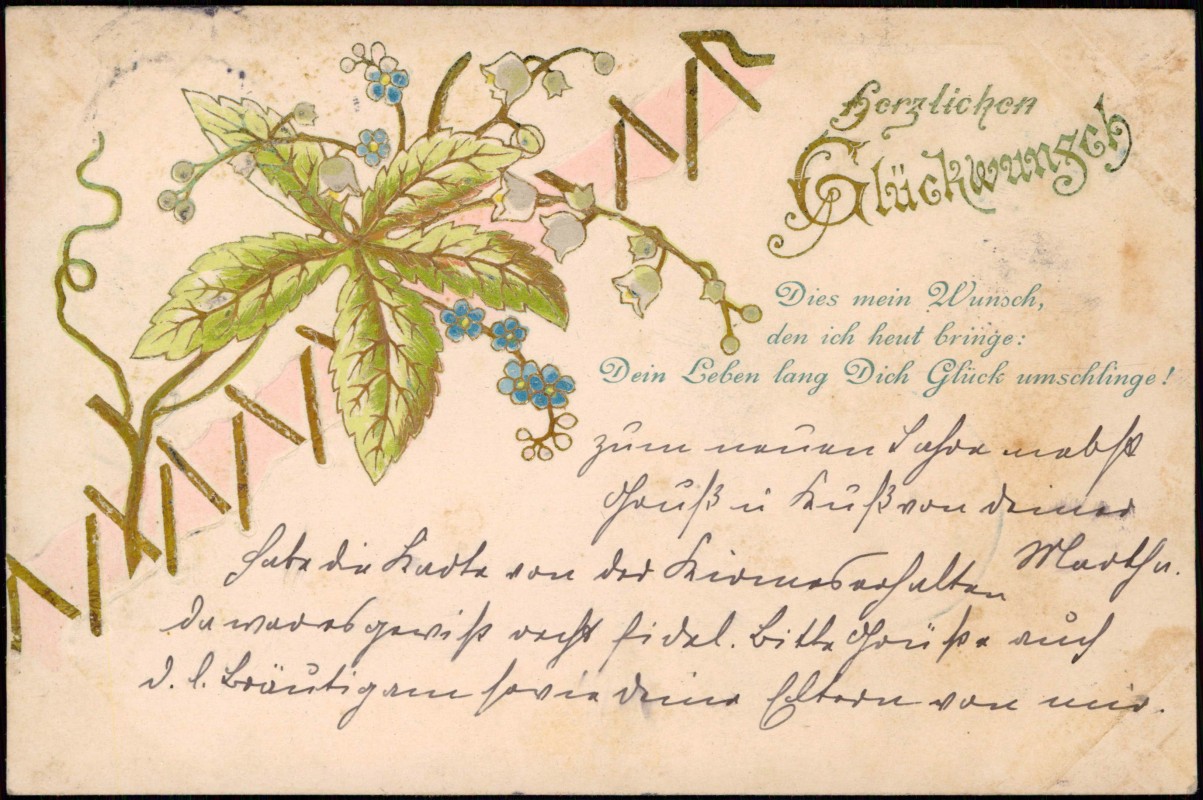 Herzlichen
Glückwunsch
Dies mein Wunsch,
den ich heut bringe:
Dein Leben lang Dich Glück umschlinge!
zum neuen Jahre nebst
Gruß u Kuß von deiner
Martha.
habe die Karte von der Kirmes erhalten
da war es gewiß recht fidel. Bitte Grüße auch
d. l. Bräutigam sowie deine Eltern von mir.